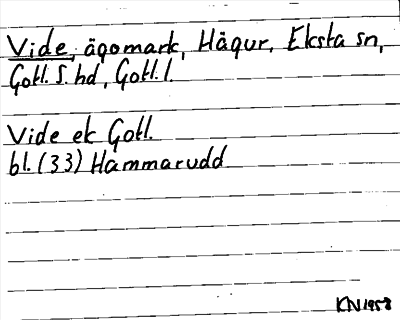 Vide, ägomark, Hägur, Eksta sn,
Gotl. S. hd, Gotl. l.
Vide ek Gotl.
bl. (33) Hammarudd
KN 1958